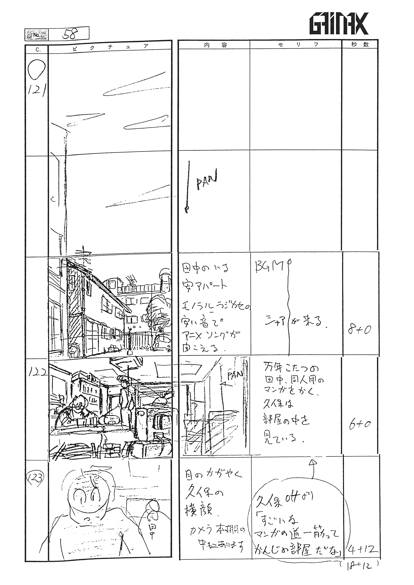 GAINAX
58
C.
ピクチュア
内容
セリフ
秒数
121
PAN
田中のいる
安アパート
モノラルラジカセの
安い音で
アニメソングが
聞こえる.
BGM
シャアが来る.
8+0
122
PAN
万年こたつの
田中、同人用の
マンガをかく.
久保は
部屋の中を
見ている.
6+0
123
田中
目のかがやく
久保の
横顔.
カメラ本棚の
中にあります
久保 off
「すごいな
マンガの道一筋って
かんじの部屋だな」
4+12
(18+12)